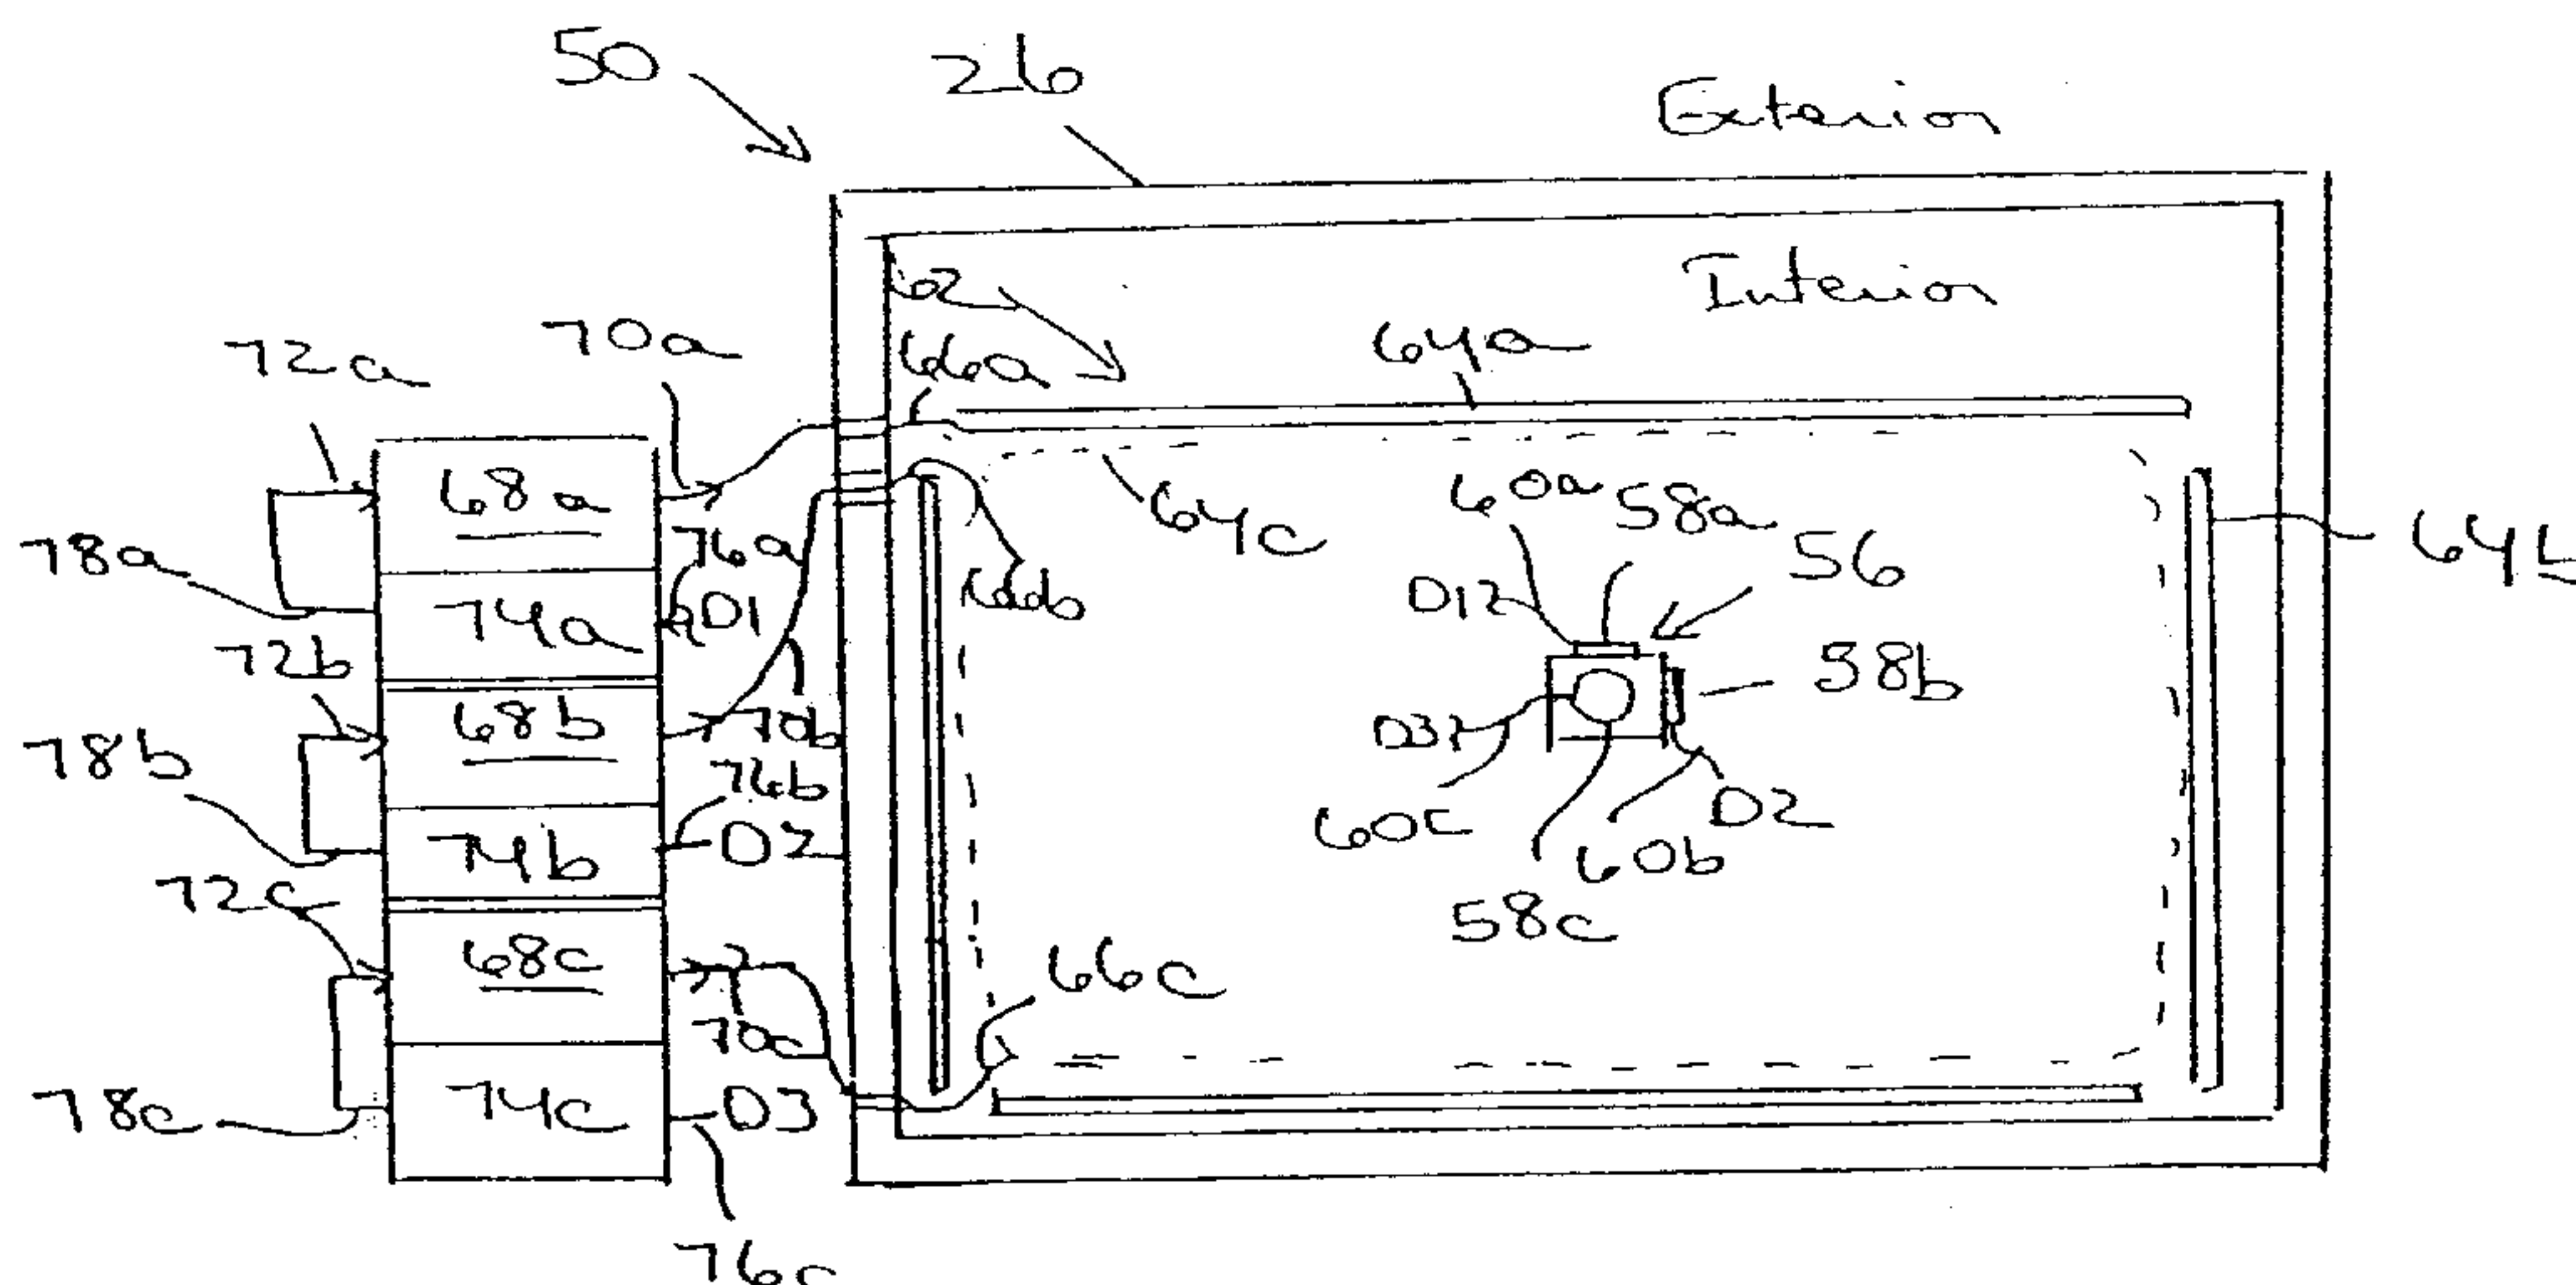 50
26
Exterior
Interior
62
72a
70a
66a
64a
68a
60a
58a
64c
56
64b
78a
76a
D1
66b
D1
74a
72b
58b
68b
70b
D3
78b
76b
60c
D2
D2
60b
74b
58c
72c
68c
66c
70c
78c
74c
D3
76c